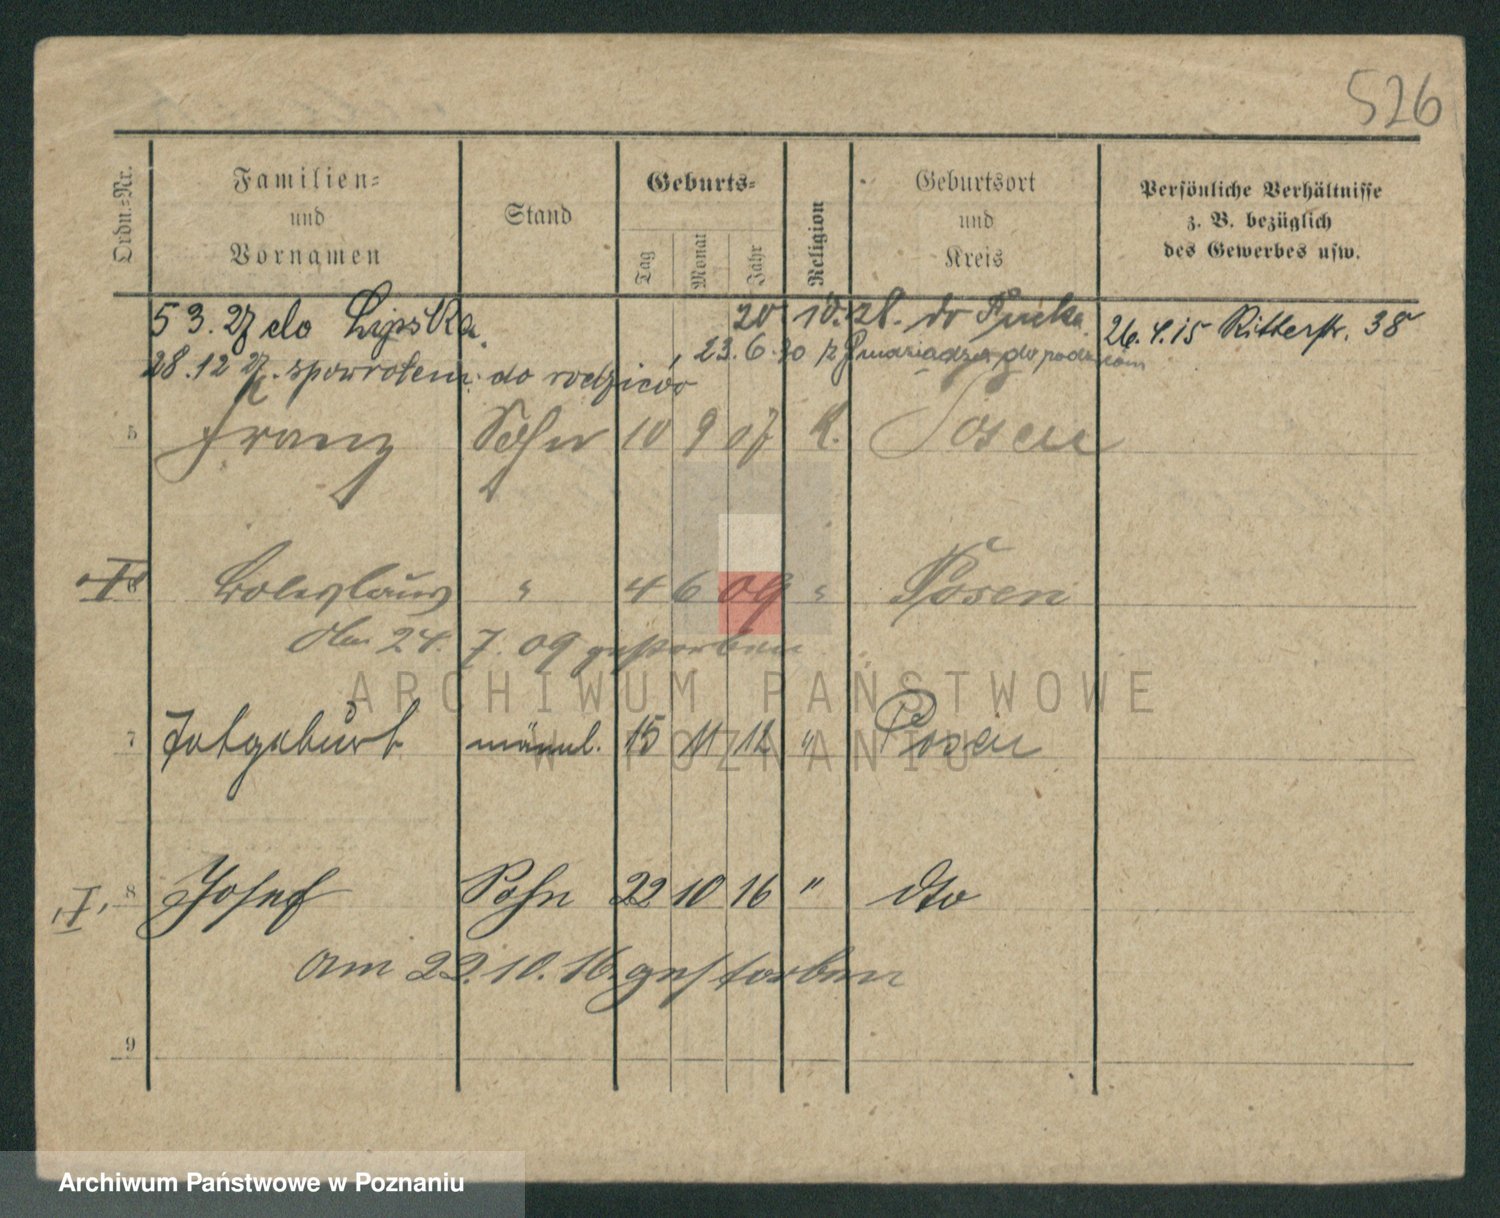 526
Ordn.-Nr. Familien- und Vornamen Stand Geburts- Tag Monat Jahr Religion Geburtsort und Kreis Persönliche Verhältnisse z. B. bezüglich des Gewerbes usw.
5 3. 27 do Lipska. 20 10. 28. do Pucka 26. 4. 15 Ritterstr. 38
28. 12 27. spowrotem do rodziców, 23. 6. 30 z Grudziądza do
5 Franz Sohn 10 9 07 K. Posen
6 Boleslaus " 4 6 09 " Posen
Am 24. 7. 09 gestorben
7 Totgeburt männl. 15 11 12 " Posen
8 Josef Sohn 22 10 16 " dto
am 22. 10. 16. gestorben
9
ARCHIWUM PAŃSTWOWE
W POZNANIU
Archiwum Państwowe w Poznaniu